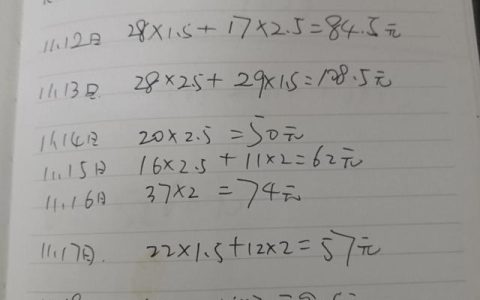 11.12日 28×1.5+17×2.5=84.5元
11.13日 28×2.5+29×1.5=128.5元
11.14日 20×2.5=50元
11.15日 16×2.5+11×2=62元
11.16日 37×2=74元
11.17日. 22×1.5+12×2=57元